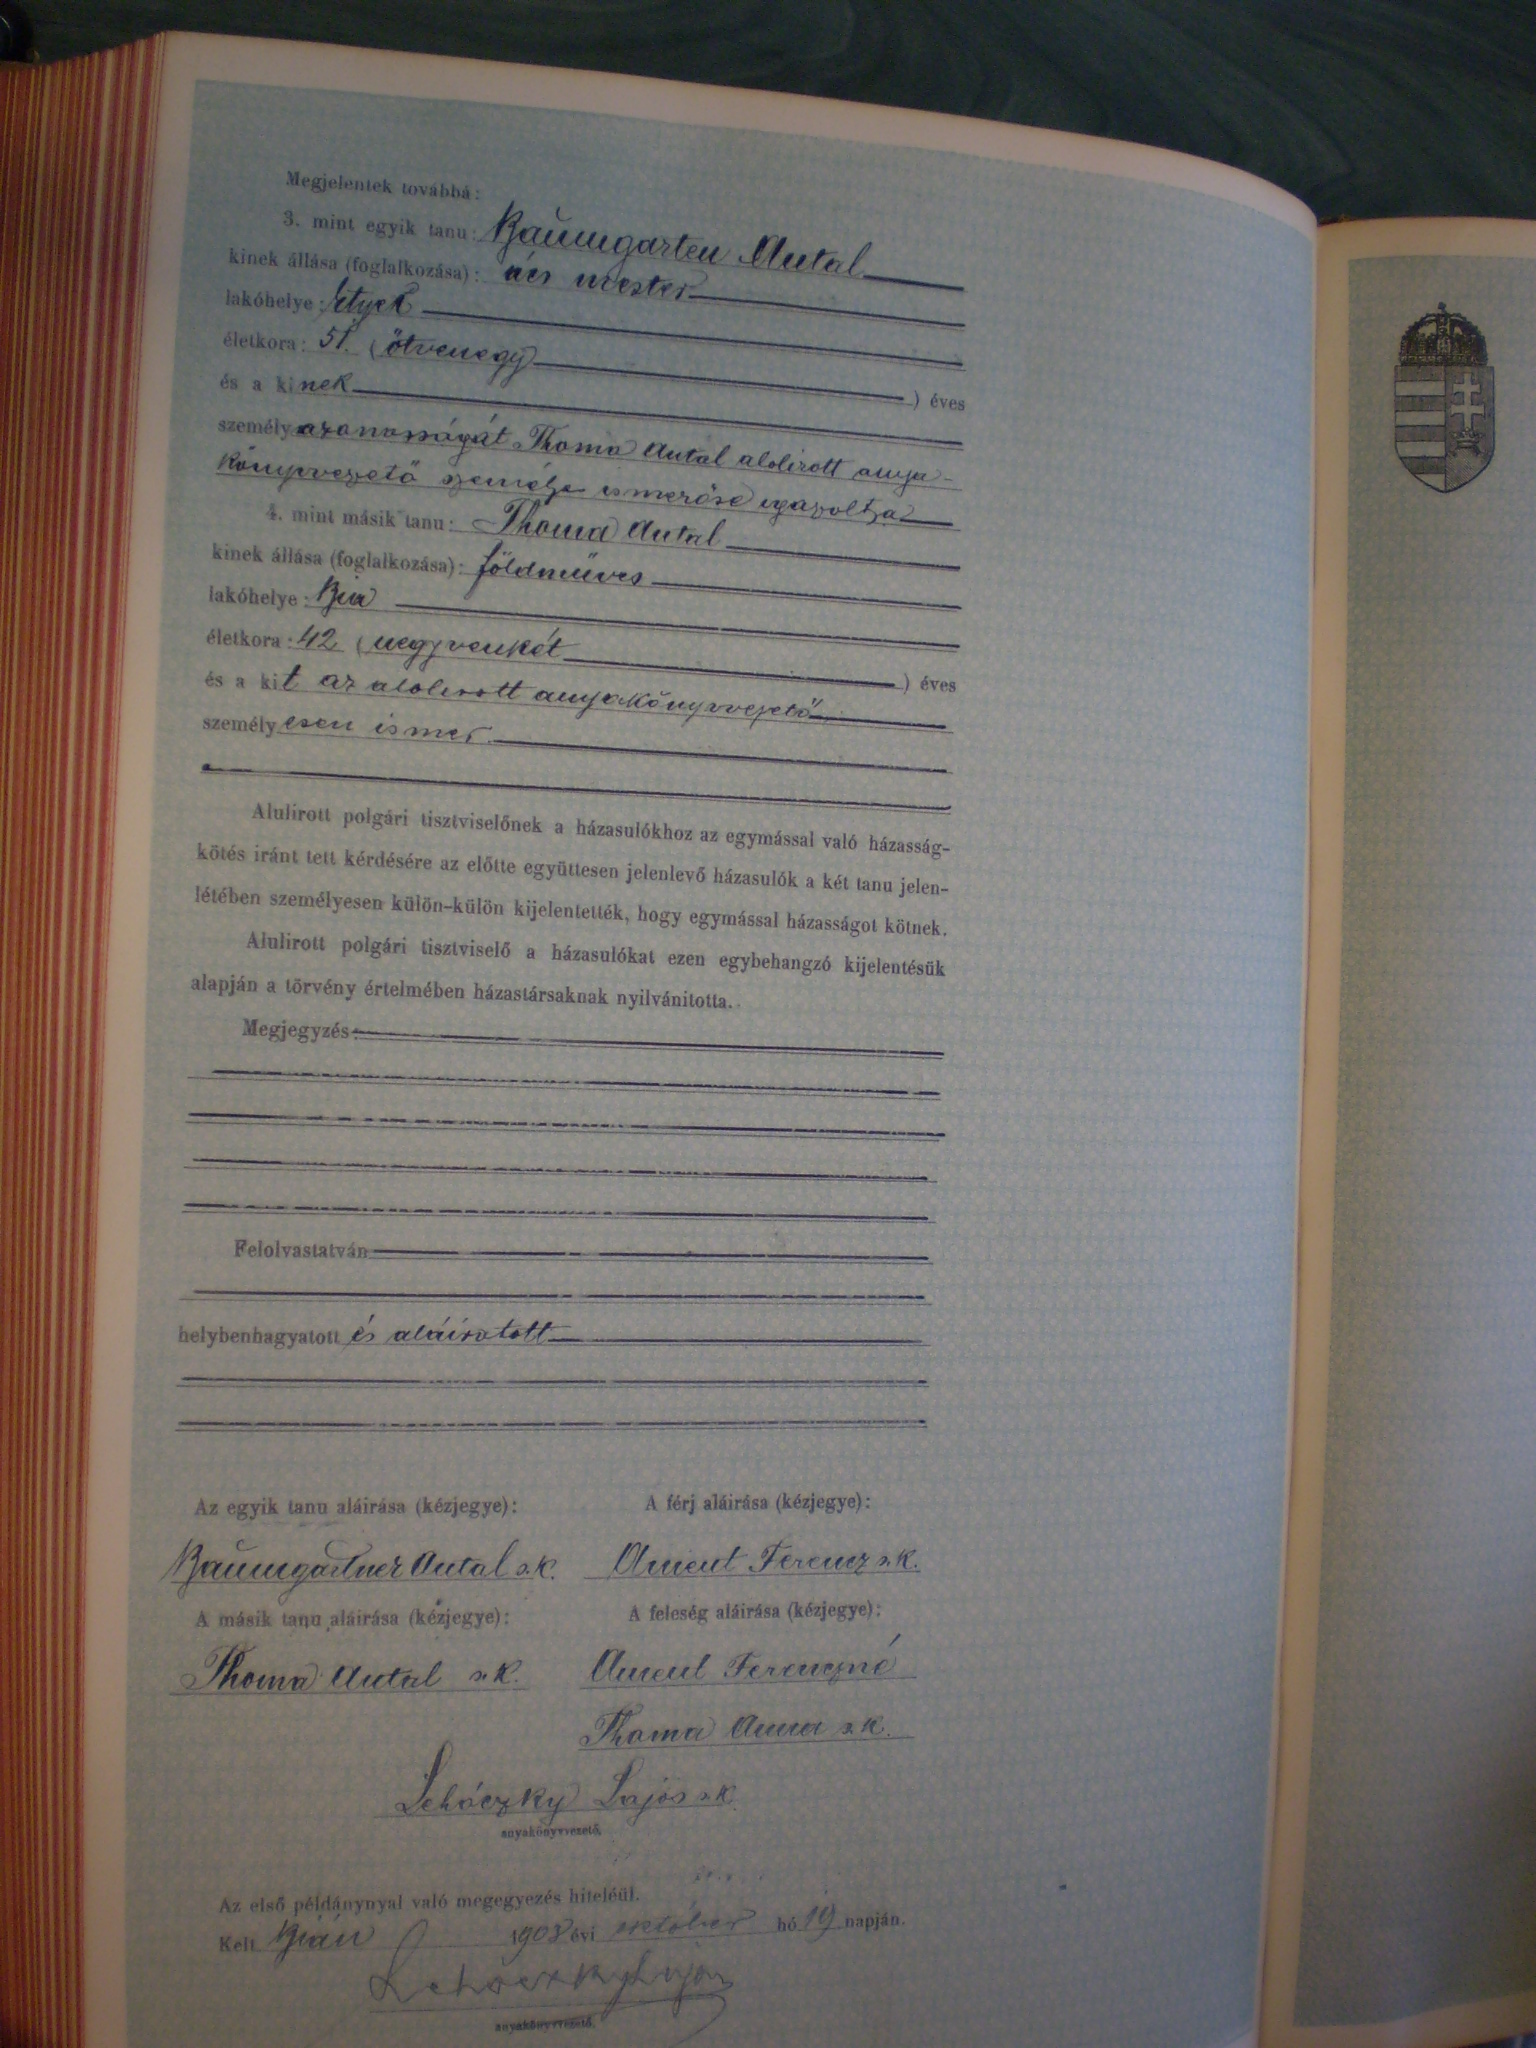 Megjelentek továbbá:
3. mint egyik tanu: Baumgarten Antal
kinek állása (foglalkozása): ács mester
lakóhelye: Etyek
életkora: 51. (ötvenegy) éves
és a kinek
személyazonosságát Thoma Antal alolirott anya-
könyvvezető személye ismerőse igazolja
4. mint másik tanu: Thoma Antal
kinek állása (foglalkozása): földmüves
lakóhelye: Bia
életkora: 42 (negyvenkét) éves
és a kit az alolirott anyakönyvvezető
személyesen ismer.
Alulirott polgári tisztviselőnek a házasulókhoz az egymással való házasság-
kötés iránt tett kérdésére az előtte együttesen jelenlevő házasulók a két tanu jelen-
létében személyesen külön-külön kijelentették, hogy egymással házasságot kötnek.
Alulirott polgári tisztviselő a házasulókat ezen egybehangzó kijelentésük
alapján a törvény értelmében házastársaknak nyilvánitotta.
Megjegyzés:
Felolvastatván
helybenhagyatott és aláiratott
Az egyik tanu aláirása (kézjegye): A férj aláirása (kézjegye):
Baumgartner Antal s.k. Ament Ferencz s.k.
A másik tanu aláirása (kézjegye): A feleség aláirása (kézjegye):
Thoma Antal s.k. Ament Ferenczné
Thoma Anna s.k.
Lehóczky Lajos s.k.
anyakönyvvezető.
Az első példánynyal való megegyezés hiteléül.
Kelt Bián 1908 évi október hó 19 napján.
Lehóczky Lajos
anyakönyvvezető.